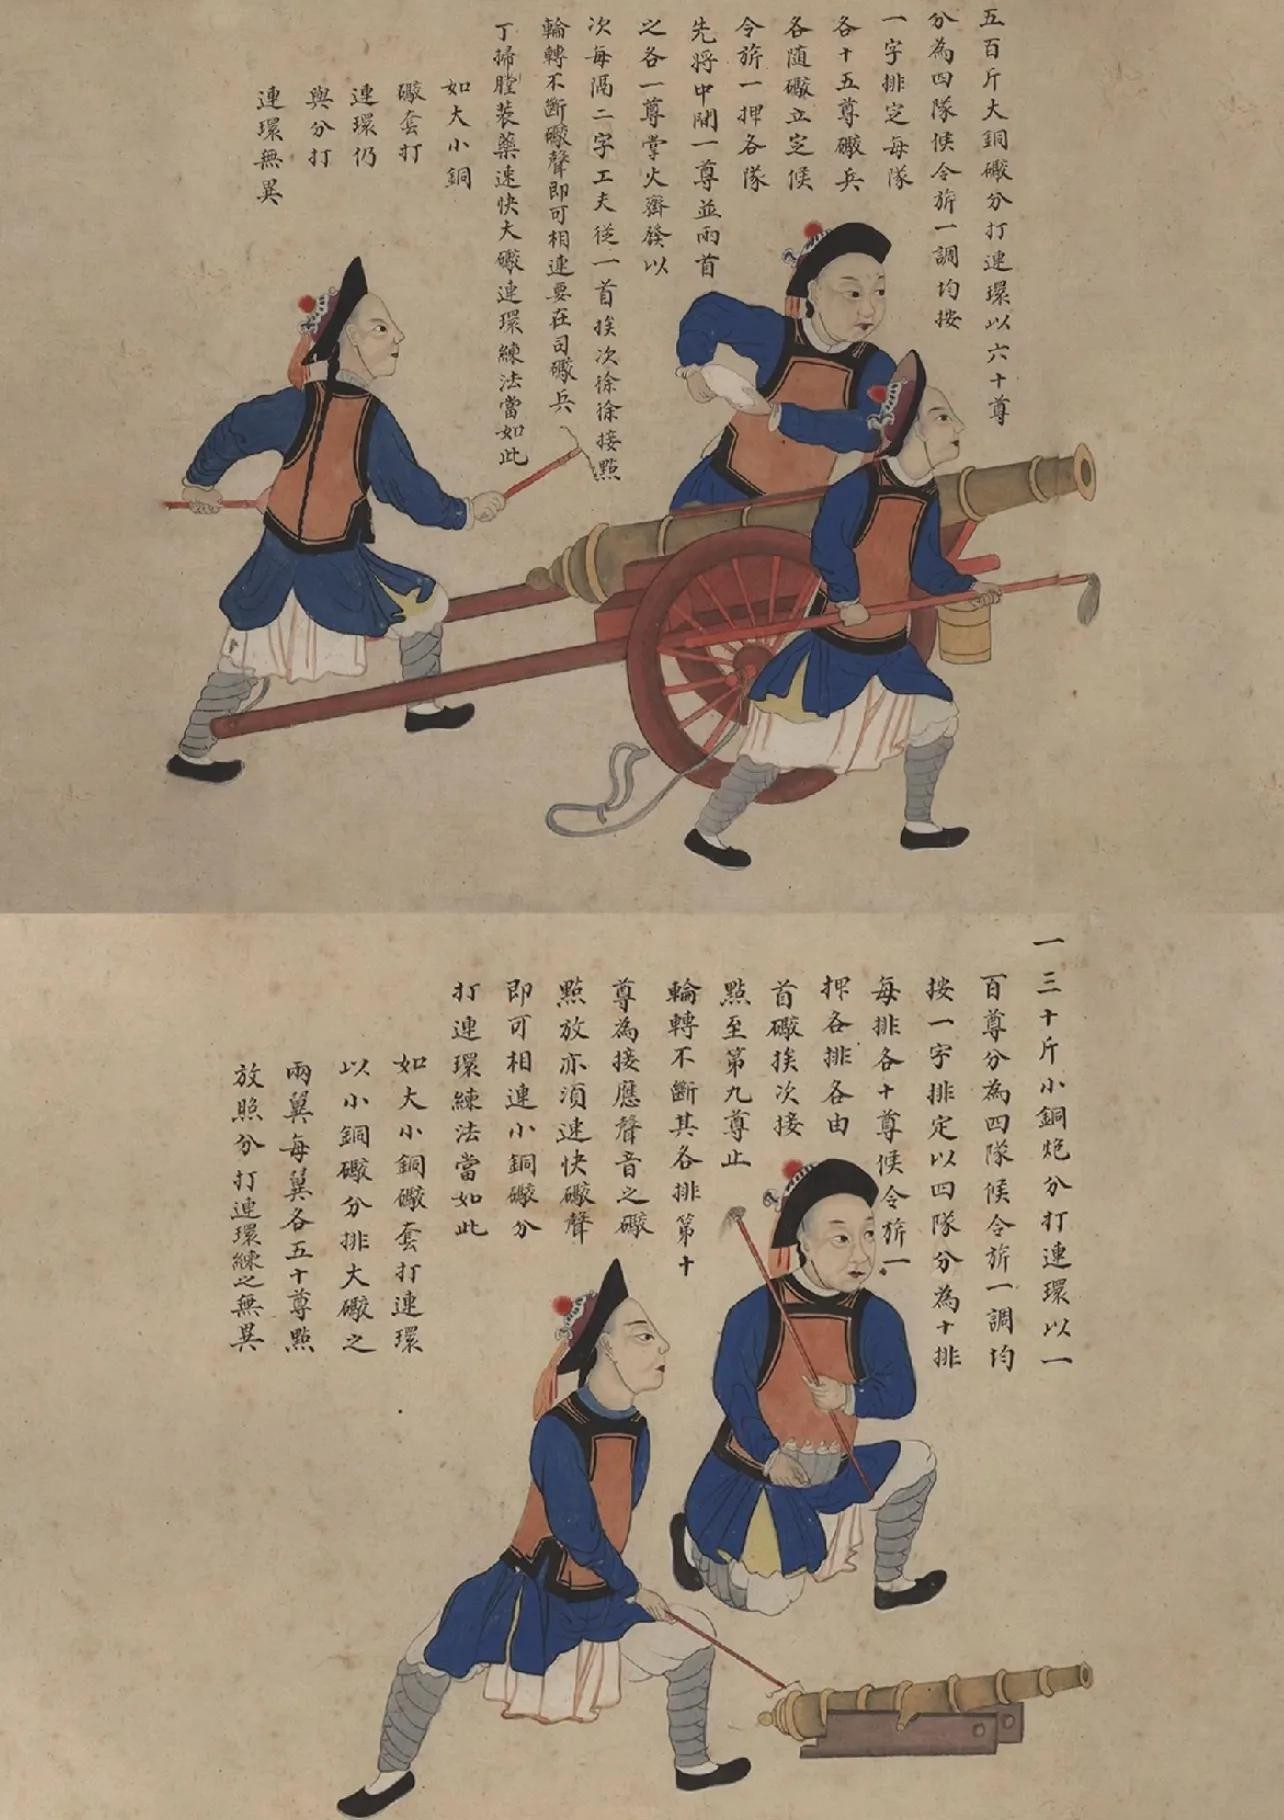 五百斤大銅礮分打連環以六十尊
分為四隊候令旂一調均按
一字排定每隊
各十五尊礮兵
各随礮立定候
令旂一押各隊
先將中間一尊並兩首
之各一尊掌火齊發以
次每隔二字工夫從一首挨次徐徐接點
輪轉不斷礮聲即可相連要在司礮兵
丁掃膛裝藥速快大礮連環練法當如此
如大小銅
礮套打
連環仍
與分打
連環無異
一三十斤小銅炮分打連環以一
百尊分為四隊候令旂一調均
按一字排定以四隊分為十排
每排各十尊候令旂一
押各排各由
首礮挨次接
點至第九尊止
輪轉不斷其各排第十
尊為接應聲音之礮
點放亦須速快礮聲
即可相連小銅礮分
打連環練法當如此
如大小銅礮套打連環
以小銅礮分排大礮之
兩翼每翼各五十尊點
放照分打連環練之無異